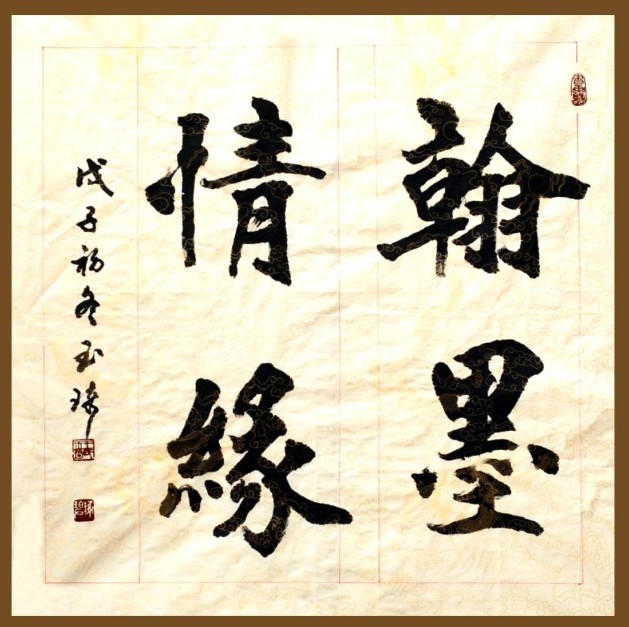 翰墨
情緣
戊子初冬玉琦